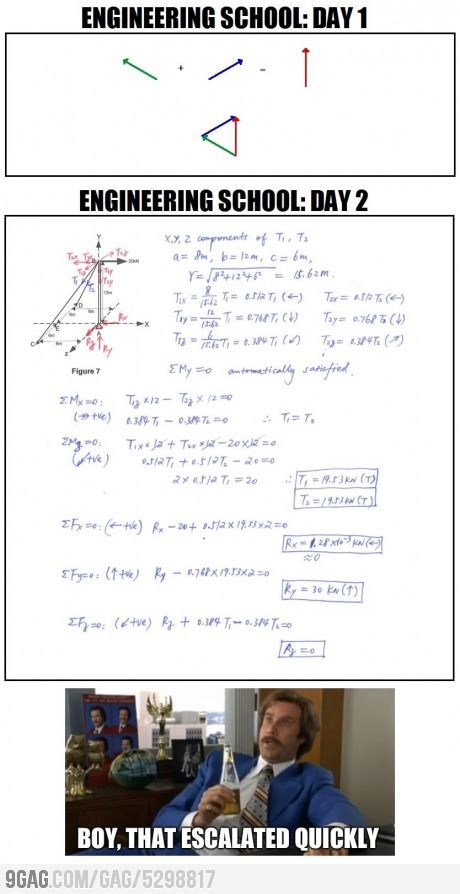 ENGINEERING SCHOOL: DAY 1
+ =
ENGINEERING SCHOOL: DAY 2
X,Y,Z components of T₁, T₂
a = 8m, b = 12m, c = 6m,
r = √8²+12²+6² = 15.62m.
T1x = 8/15.62 T₁ = 0.512 T₁ (←) T2x = 0.512 T₂ (←)
T1y = 12/15.62 T₁ = 0.768 T₁ (↓) T2y = 0.768 T₂ (↓)
T1z = 6/15.62 T₁ = 0.384 T₁ (↙) T2z = 0.384 T₂ (↗)
Figure 7
ΣMy = 0 automatically satisfied.
ΣMx = 0: T1z × 12 − T2z × 12 = 0
(+ve) 0.384 T₁ − 0.384 T₂ = 0 ∴ T₁ = T₂
ΣMz = 0: T1x × 12 + T2x × 12 − 20 × 12 = 0
(+ve) 0.512 T₁ + 0.512 T₂ − 20 = 0
2 × 0.512 T₁ = 20 ∴ T₁ = 19.53 kN (T)
T₂ = 19.53 kN (T)
ΣFx = 0: (← +ve) Rx − 20 + 0.512 × 19.53 × 2 = 0
Rx = 1.28×10⁻³ kN (←)
≈ 0
ΣFy = 0: (↑ +ve) Ry − 0.768 × 19.53 × 2 = 0
Ry = 30 kN (↑)
ΣFz = 0: (↙ +ve) Rz + 0.384 T₁ − 0.384 T₂ = 0
Rz = 0
BOY, THAT ESCALATED QUICKLY
9GAG.COM/GAG/5298817